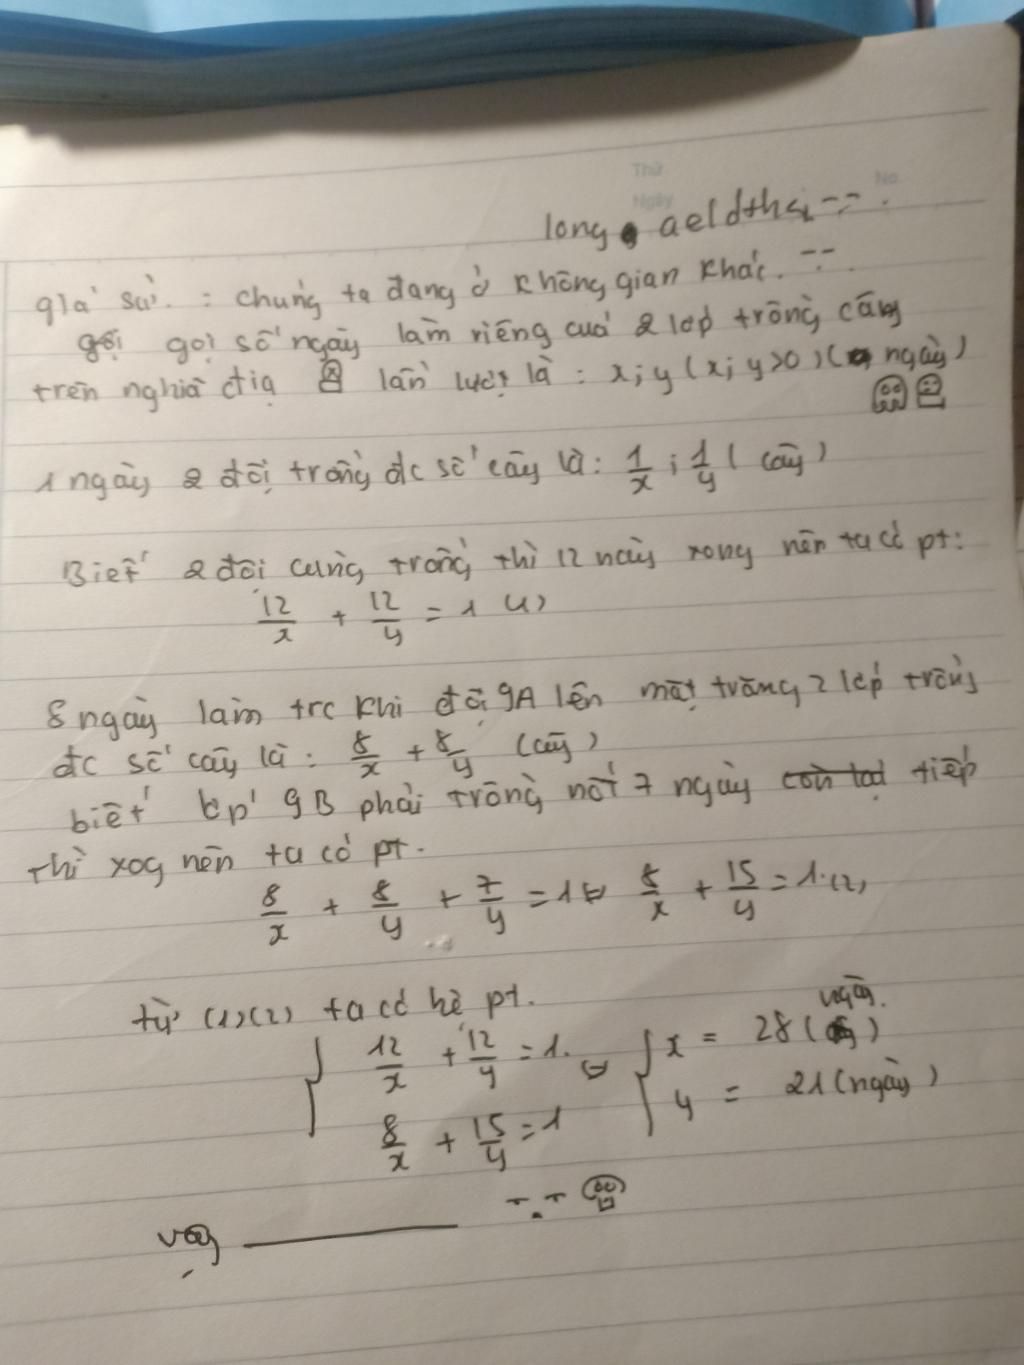 Thứ
Ngày
No.
long aeldthsi
giả sử : chúng ta đang ở không gian khác.
gọi số ngày làm riêng cuả 2 lớp trồng cây
trên nghiã địa lần lượt là : x; y (x; y>0) (ngày)
1 ngày 2 đội trồng đc số cây là: 1/x ; 1/y (cây)
Biết 2 đội cùng trồng thì 12 này xong nên ta có pt:
12/x + 12/y = 1 (1)
8 ngày làm trc khi đội 9A lên mặt trăng 2 lớp trồng
đc số cây là : 8/x + 8/y (cây)
biết lớp 9B phải trồng nốt 7 ngày còn lại tiếp
thì xog nên ta có pt.
8/x + 8/y + 7/y = 1 ⇔ 8/x + 15/y = 1. (2)
từ (1)(2) ta có hệ pt.
{ 12/x + 12/y = 1. ⇔ { x = 28 (ngày)
8/x + 15/y = 1 y = 21 (ngày)
vậy